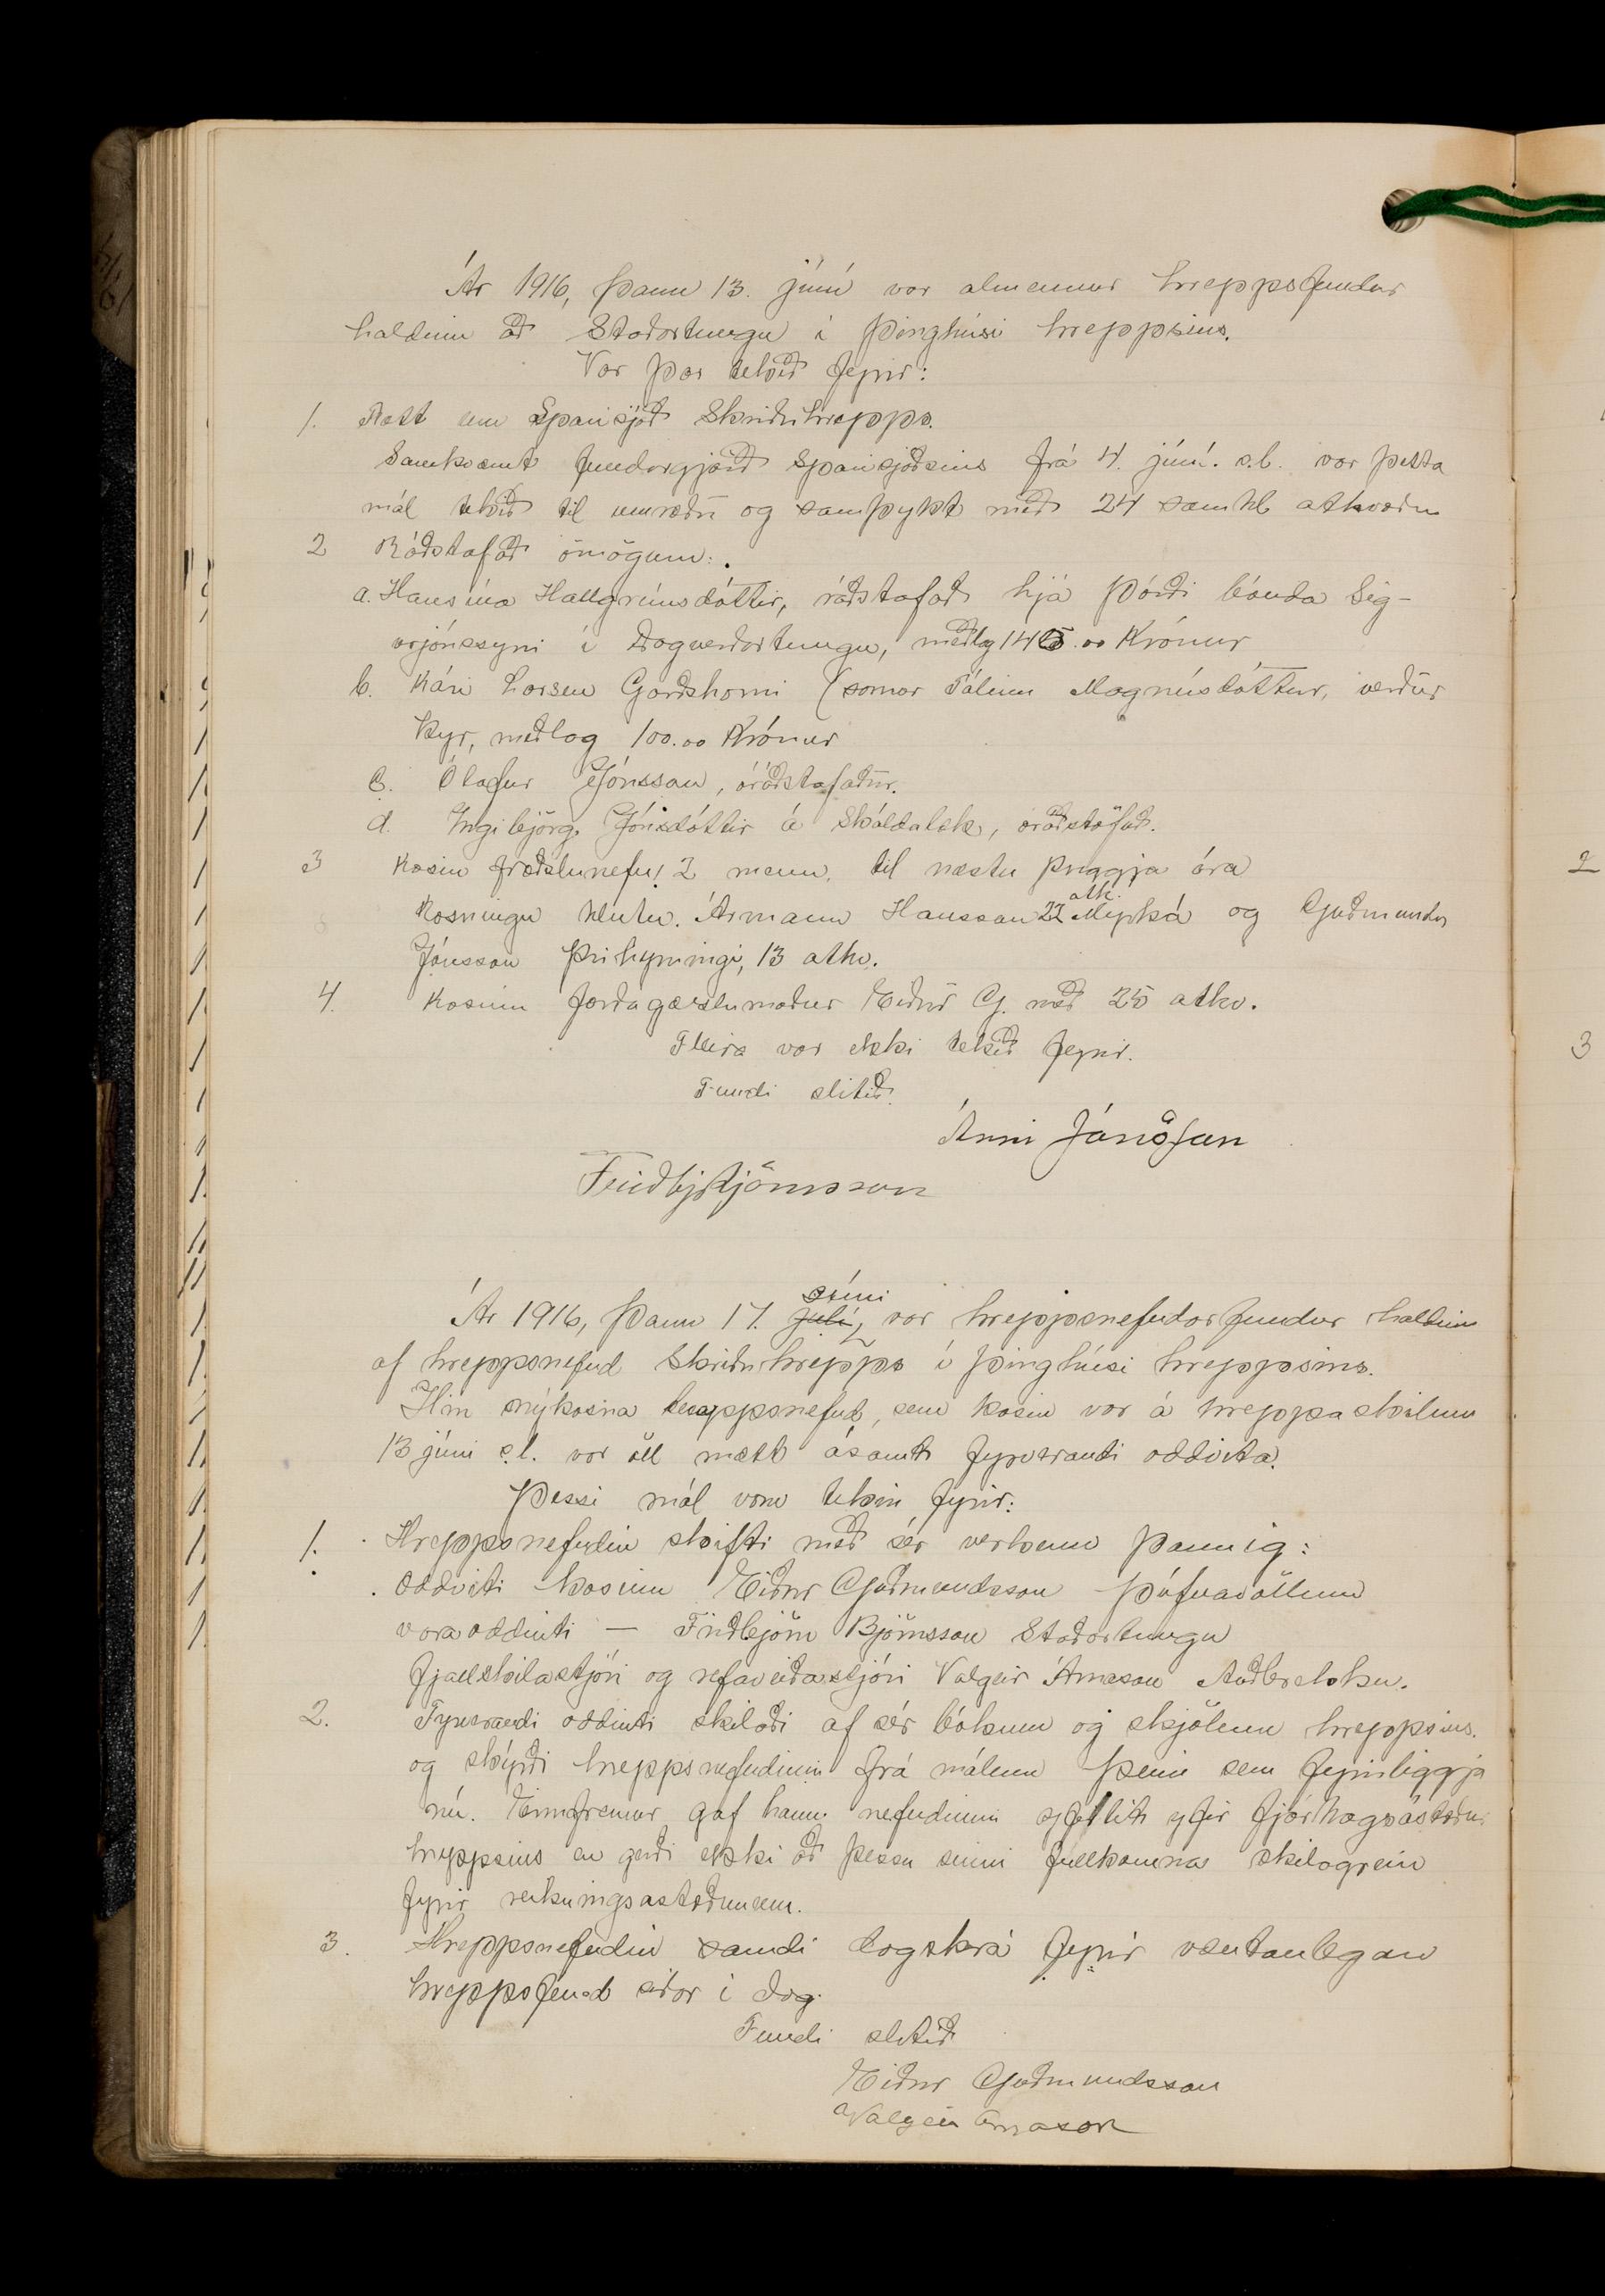 Ár 1916, þann 13. júní var almennur hreppsfundur
haldinn að Staðartungu í þinghúsi hreppsins.
Var þar tekið fyrir:
1. Rætt um Sparisjóð Skriðuhrepps.
Samkvæmt fundargjörð Sparisjóðsins frá 4. júní. s.l. var þetta
mál tekið til umræðu og samþykt með 24 samhl atkvæðum
2 Ráðstafað ómögum:.
a. Hansína Hallgrímsdóttir, ráðstafað hjá Þórði bónda Sig-
urjónssyni í Dagverðartungu, meðlag 145.00 Krónur
b. Kári Larsen Garðshorni (sonar Pálínu Magnúsdóttur, verður
kyr, meðlag 100.00 Krónur
c. Ólafur Jónsson, óráðstafaður.
d. Ingibjörg Jónsdóttir á Skáldalæk, óráðstöfuð.
3 Kosin fræðslunefn! 2 menn. til næstu þriggja ára
Kosningu hlutu. Ármann Hansson 22 atk. Myrká og Guðmundur
Jónsson Þríhyrningi, 13 atkv.
4. Kosinn forðagæslumaður Eiður G. með 25 atkv.
Fleira var ekki tekið fyrir.
Fundi slitið.
Árni Jónsson
Friðbj Björnsson
Ár 1916, þann 17. júlí, júní var hreppsnefndarfundur haldinn
af hreppsnefnd Skriðuhrepps í þinghúsi hreppsins.
Hin nýkosna hreppsnefnd, sem kosin var á hreppaskilum
13 júní s.l. var öll mætt ásamt fyrverandi oddvita.
Þessi mál voru tekin fyrir:
1. Hreppsnefndin skifti með sér verkum þannig:
Oddviti kosinn Eiður Guðmundsson Þúfnavöllum
varaoddviti — Friðbjörn Björnsson Staðartungu
fjallskilastjóri og refaveiðastjóri Valgeir Árnason Auðbrekku.
2. Fyrverandi oddviti skilaði af sér bókum og skjölum hreppsins.
og skýrði hreppsnefndinni frá málum þeim sem fyrirliggja
nú. Ennfremur gaf hann nefndinni yfirlit yfir fjárhagsástæður
hreppsins en gerði ekki að þessu sinni fullkomna skilagrein
fyrir reikningsástæðunum.
3. Hreppsnefndin samdi dagskrá fyrir væntanlegan
hreppsfund síðar í dag.
Fundi slitið
Eiður Guðmundsson
Valgeir Árnason
2
3